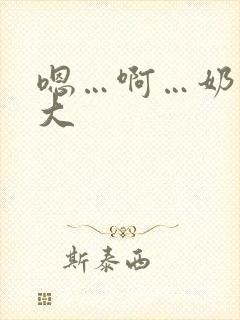 嗯…啊…奶
大
斯泰西